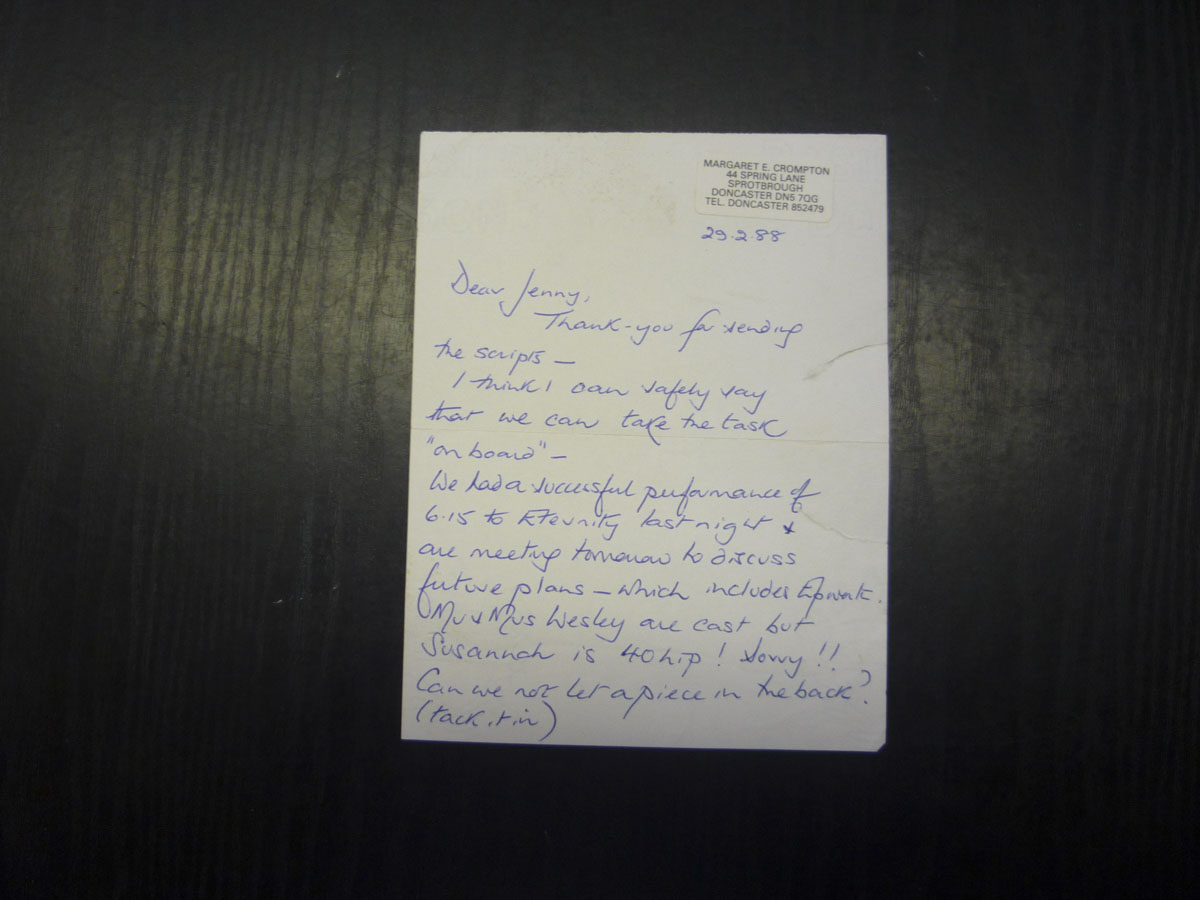 MARGARET E. CROMPTON
44 SPRING LANE
SPROTBROUGH
DONCASTER DN5 7QG
TEL. DONCASTER 852479
29.2.88
Dear Jenny,
Thank-you for sending
the scripts —
I think I can safely say
that we can take the task
"on board" —
We had a successful performance of
6.15 to Eternity last night &
are meeting tomorrow to discuss
future plans — which includes Epworth.
Mr & Mrs Wesley are cast but
Susannah is 40 hip! Sorry!!
Can we not let a piece in the back?
(tack it in)